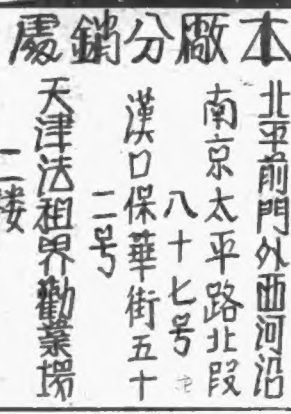 本廠分銷處
北平前門外西河沿
南京太平路北段
八十七号
漢口保華街五十
二号
天津法租界勸業場
二楼